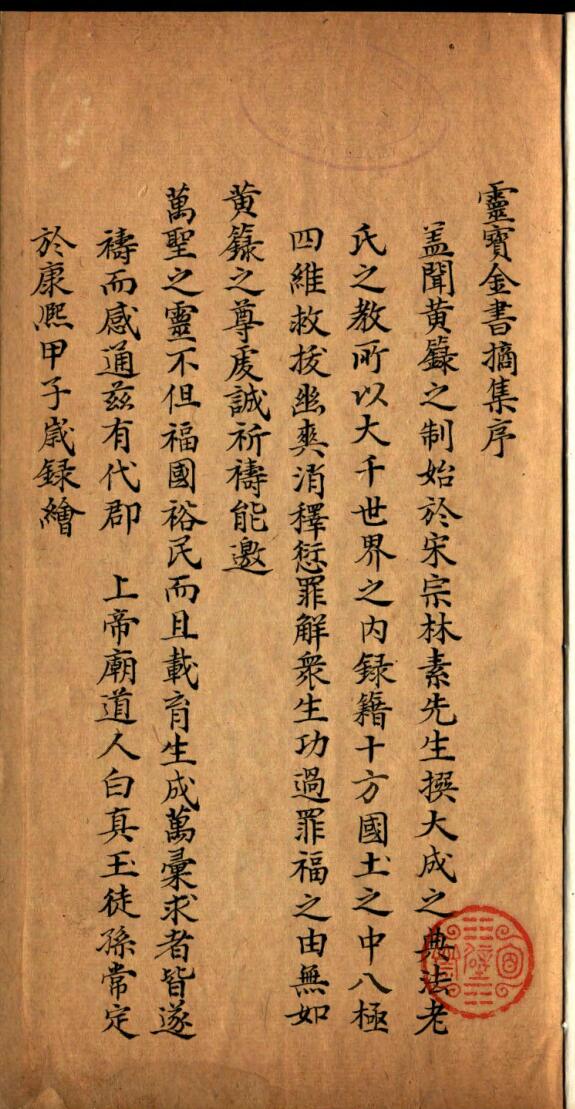 靈寶金書摘集序
盖聞黄籙之制始於宋宗林素先生撰大成之典法老
氏之教所以大千世界之内録籍十方國土之中八極
四維救拔幽爽消釋愆罪解衆生功過罪福之由無如
黄籙之尊虔誠祈禱能邀
萬聖之靈不但福國裕民而且載育生成萬彙求者皆遂
禱而感通兹有代郡 上帝廟道人白真玉徒孫常定
於康熈甲子歲録繪